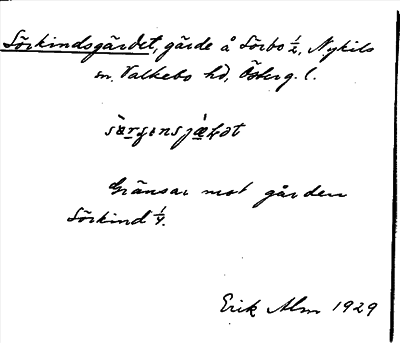 Sörkindsgärdet, gärde å Sörbo 1/2, Nykils
sn. Valkebo hd, Österg. l.
Gränsar mot gården
Sörkind 1/4.
Erik Alm 1929